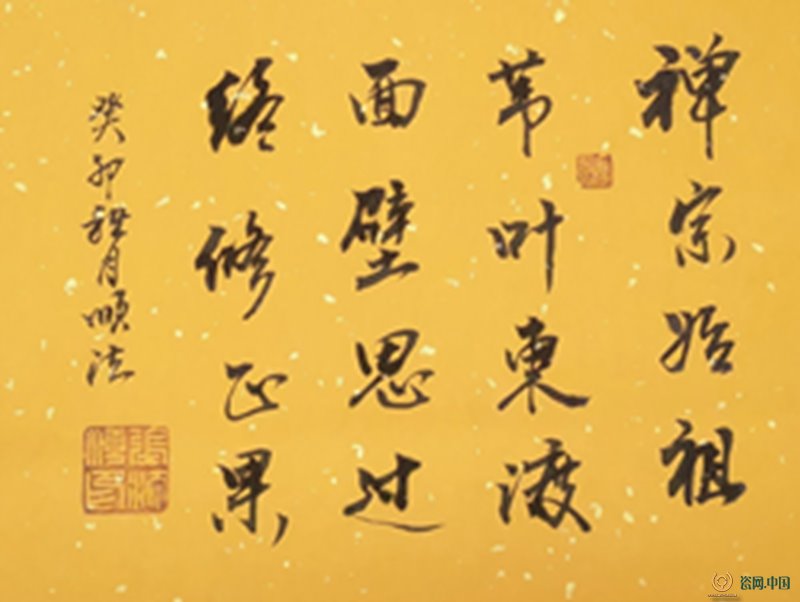 禅宗始祖
苇叶东渡
面壁思过
终修正果
癸卯 月顺法
瓷网.中国